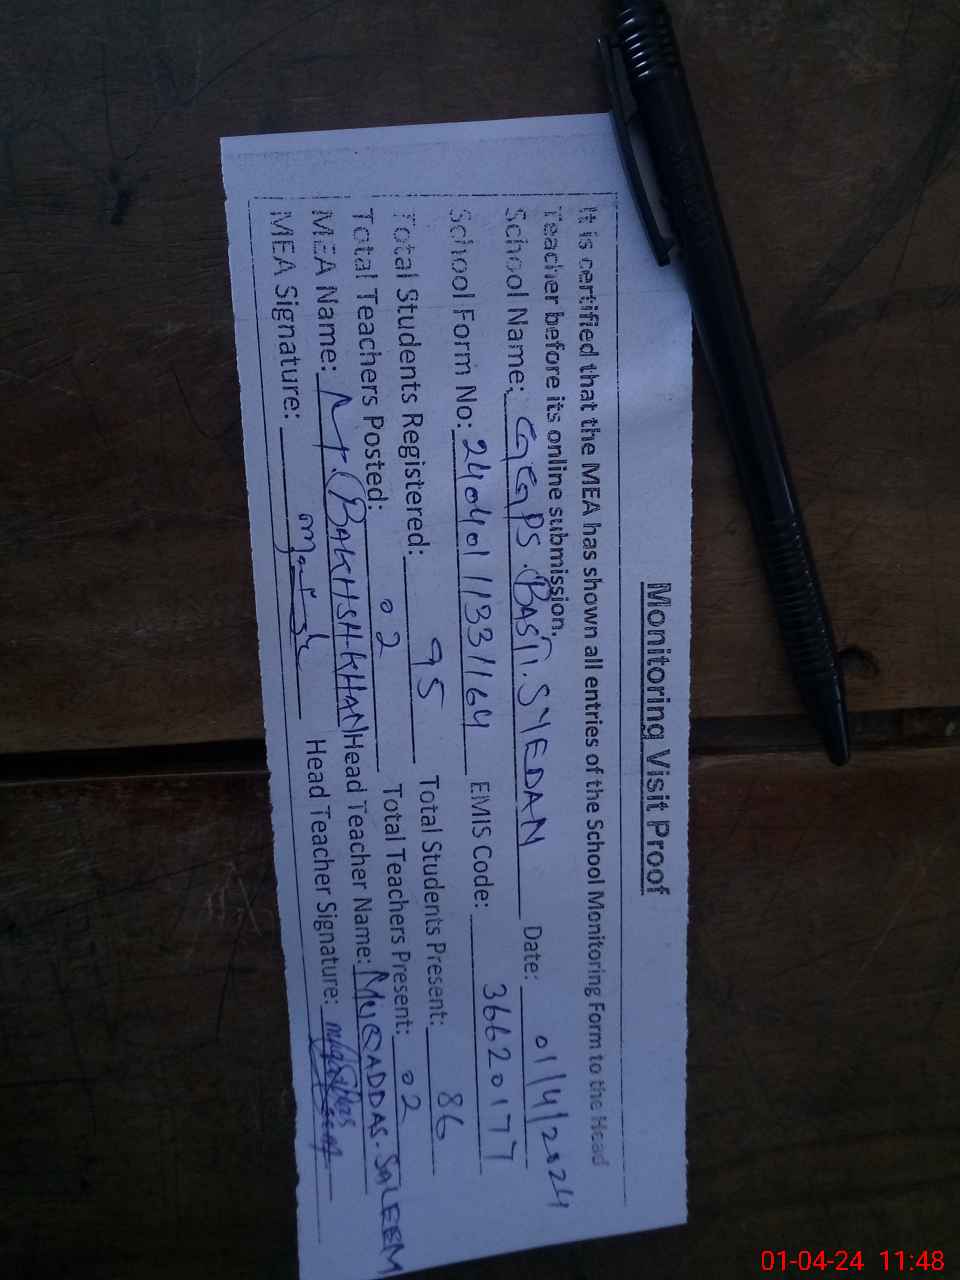 Monitoring Visit Proof
It is certified that the MEA has shown all entries of the School Monitoring Form to the Head
Teacher before its online submission.
School Name: GGPS. BASTI. SYEDAN Date: 01/4/2024
School Form No: 240401 1331164 EMIS Code: 36620177
Total Students Registered: 95 Total Students Present: 86
Total Teachers Posted: 02 Total Teachers Present: 02
MEA Name: M. BAKHSH KHAN Head Teacher Name: MUQADDAS. SALEEM
MEA Signature: Head Teacher Signature:
01-04-24 11:48